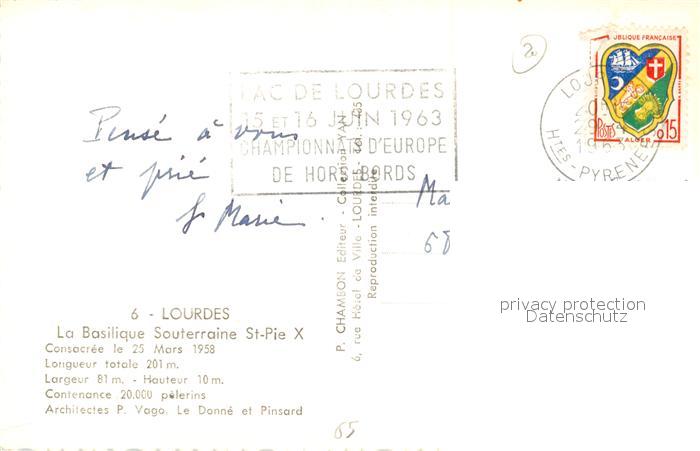 2
LAC DE LOURDES
15 ET 16 JUIN 1963
CHAMPIONNAT D'EUROPE
DE HORS BORDS
UBLIQUE FRANÇAISE
POSTES
0,15
ALGER
HTES-PYRENEES
Pensé à vous
et prié
Sr Marie.
Ma
68
P. CHAMBON Editeur - Collection YAN
6, rue Hôtel de Ville - LOURDES - Tél.: 405
Reproduction interdite
privacy protection
Datenschutz
6 - LOURDES
La Basilique Souterraine St-Pie X
Consacrée le 25 Mars 1958
Longueur totale 201 m.
Largeur 81 m. - Hauteur 10 m.
Contenance 20.000 pèlerins
Architectes P. Vago, Le Donné et Pinsard
65